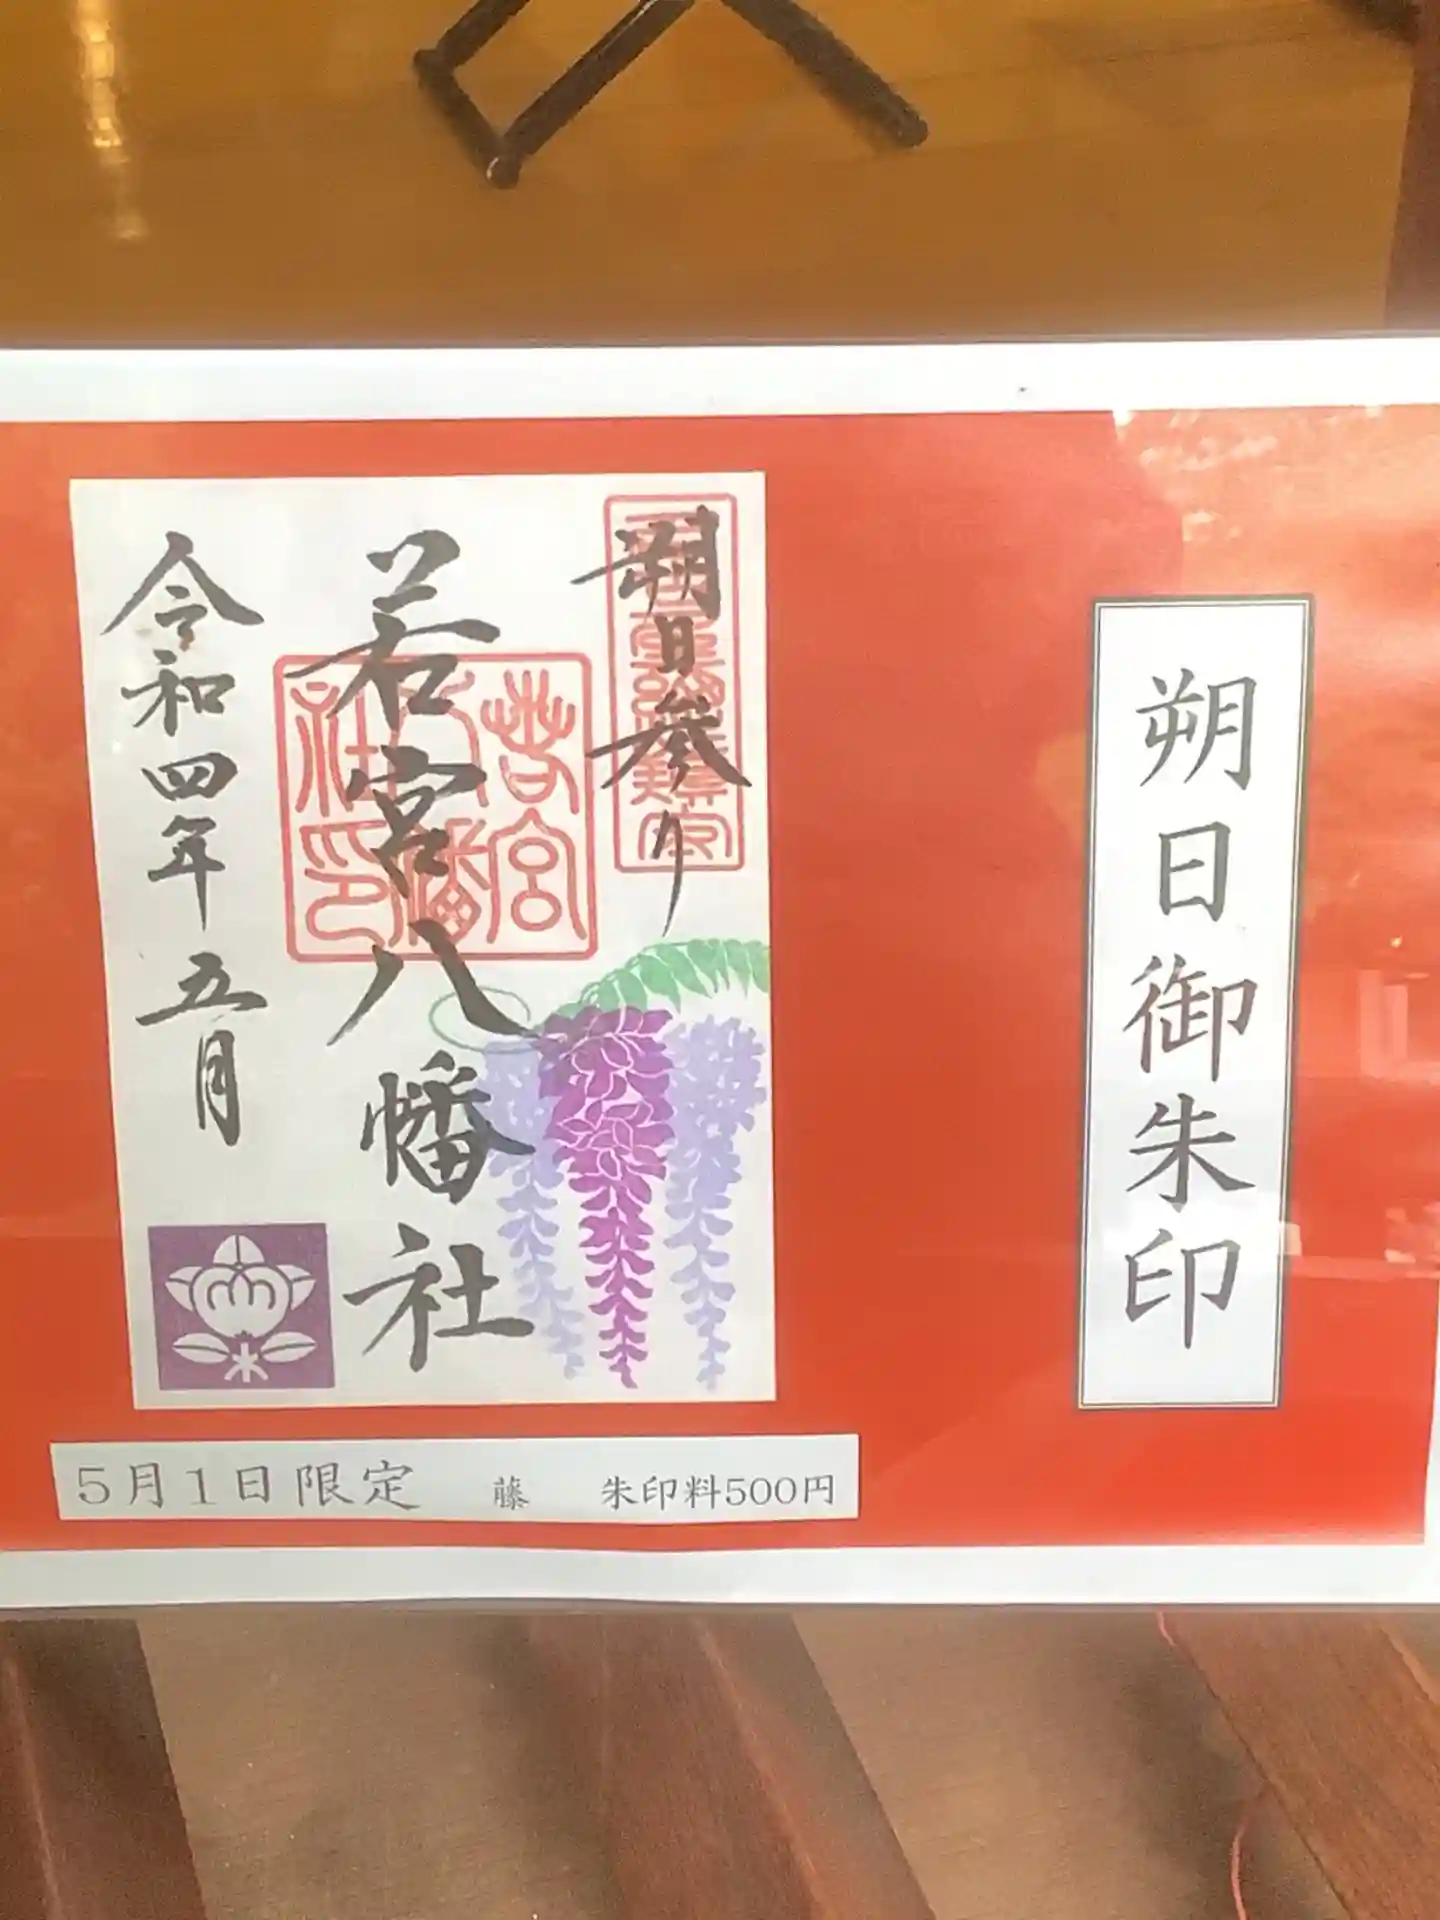 朔日御朱印
朔日参り
若宮八幡社
令和四年五月
若宮
八幡
社印
5月1日限定　藤　朱印料500円